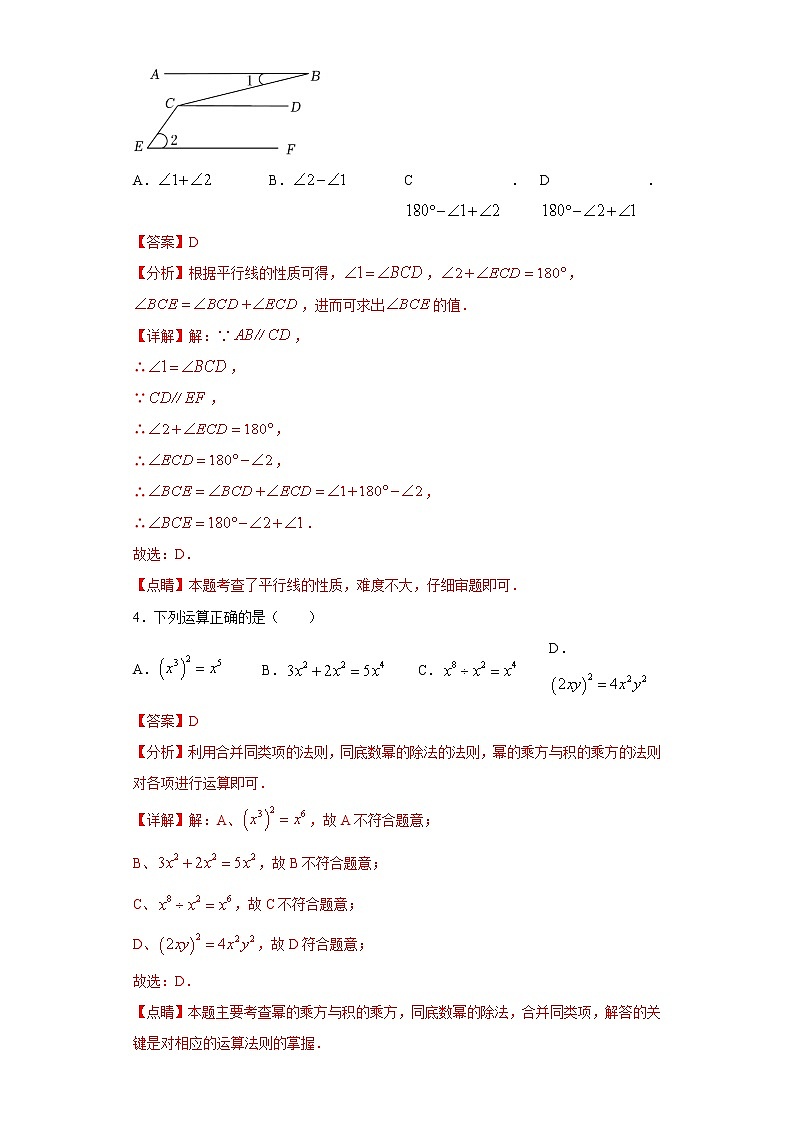 A
1
B
C
D
E
2
F
A．∠1+∠2 B．∠2−∠1 C ． D ．
180°−∠1+∠2 180°−∠2+∠1
【答案】D
【分析】根据平行线的性质可得，∠1=∠BCD，∠2+∠ECD=180°，
∠BCE=∠BCD+∠ECD，进而可求出∠BCE的值．
【详解】解：∵AB// CD，
∴∠1=∠BCD，
∵CD// EF，
∴∠2+∠ECD=180°，
∴∠ECD=180°−∠2，
∴∠BCE=∠BCD+∠ECD=∠1+180°−∠2，
∴∠BCE=180°−∠2+∠1．
故选：D．
【点睛】本题考查了平行线的性质，难度不大，仔细审题即可．
4．下列运算正确的是（ ）
A．(x³)²=x⁵ B．3x²+2x²=5x⁴ C．x⁸÷x²=x⁴ D．
(2xy)²=4x²y²
【答案】D
【分析】利用合并同类项的法则，同底数幂的除法的法则，幂的乘方与积的乘方的法则
对各项进行运算即可．
【详解】解：A、(x³)²=x⁶，故A不符合题意；
B、3x²+2x²=5x²，故B不符合题意；
C、x⁸÷x²=x⁶，故C不符合题意；
D、(2xy)²=4x²y²，故D符合题意；
故选：D．
【点睛】本题主要考查幂的乘方与积的乘方，同底数幂的除法，合并同类项，解答的关
键是对相应的运算法则的掌握．